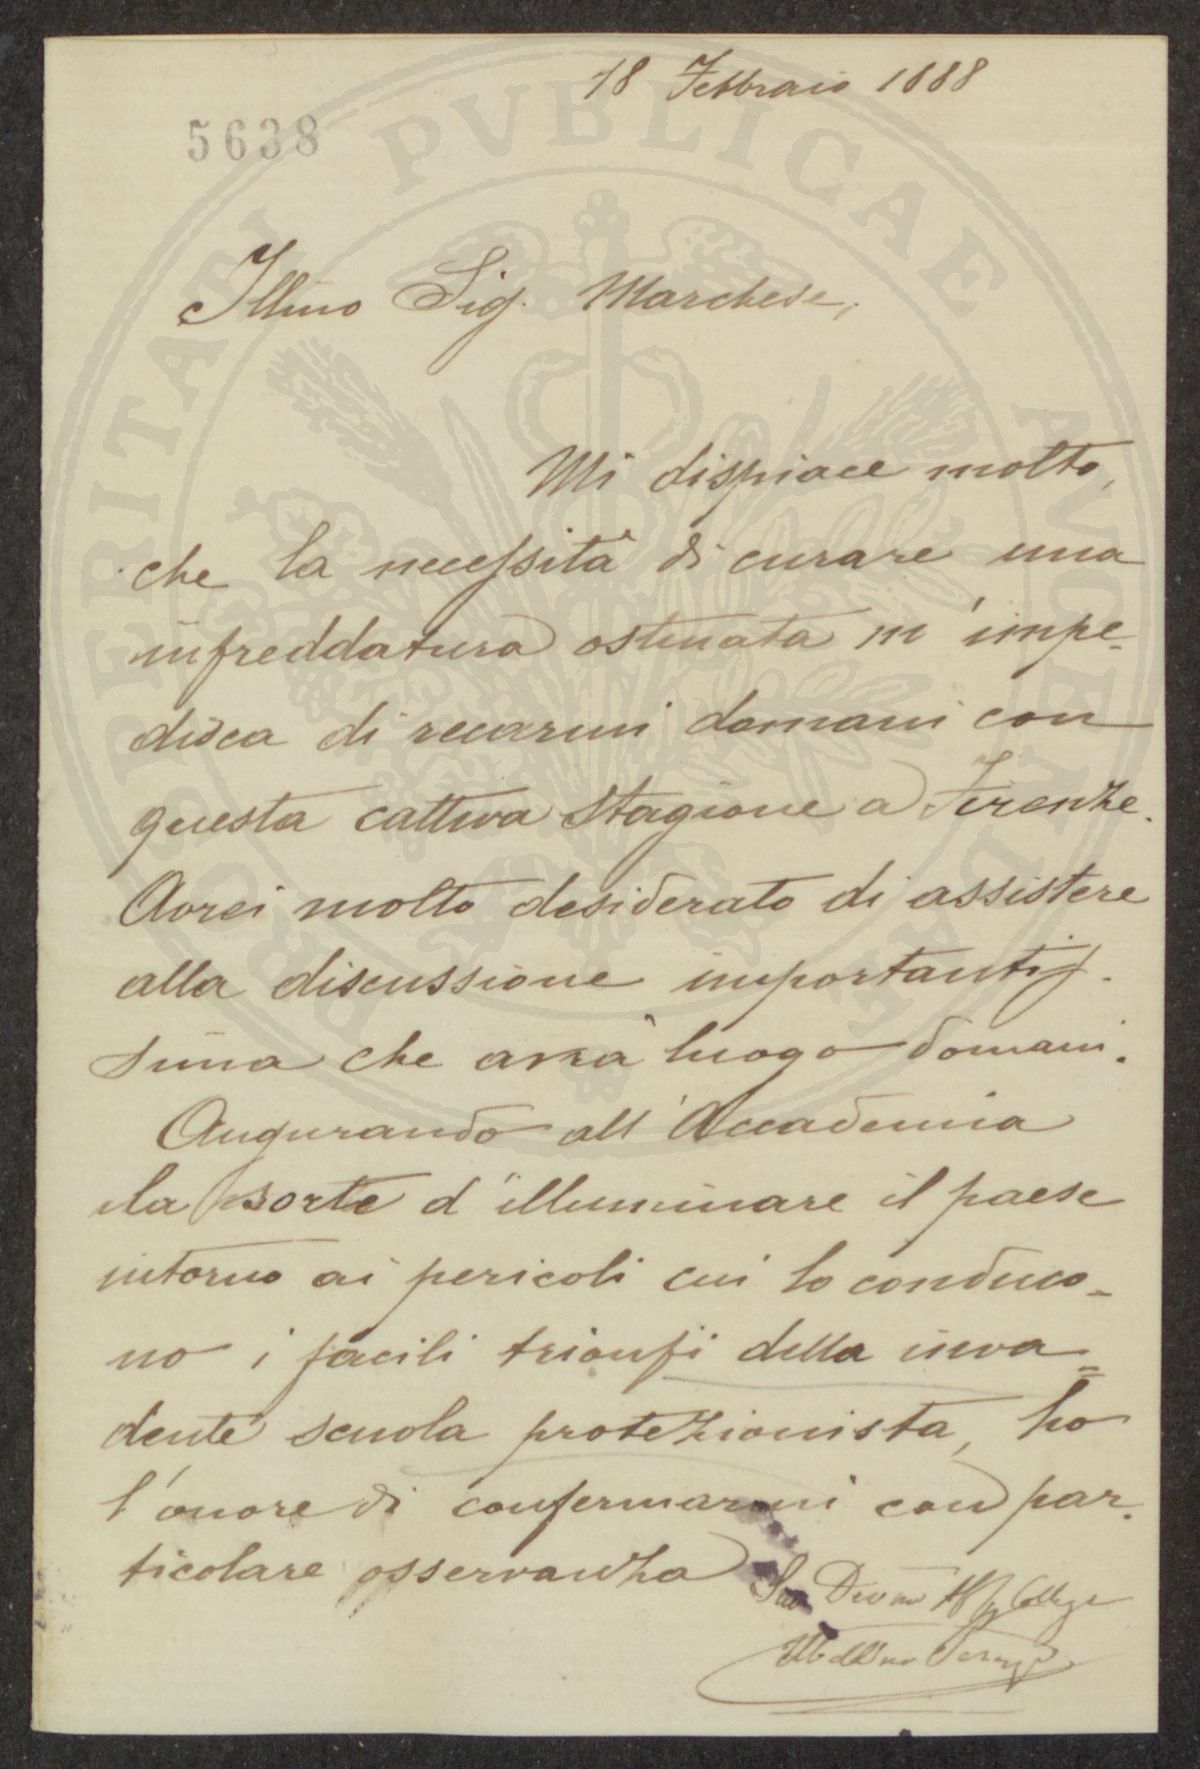 18 Febbraio 1888
5638
PROSPERITATI PVBLICAE AVGENDAE
Illmo Sig. Marchese,
Mi dispiace molto,
che la necessità di curare una
infreddatura ostinata m'impe-
disca di recarmi domani con
questa cattiva stagione a Firenze.
Avrei molto desiderato di assistere
alla discussione importantis-
sima che avrà luogo domani.
Augurando all'Accademia
la sorte d'illuminare il paese
intorno ai pericoli cui lo conduco-
no i facili trionfi della inva=
dente scuola protezionista, ho
l'onore di confermarmi con par-
ticolare osservanza
Suo Devmo